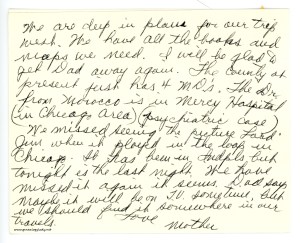 We are deep in plans for our trip
west. We have all the books and
maps we need. I will be glad to
get Dad away again. The county at
present just has 4 M.D.s. The Dr.
from Morocco is in Mercy Hospital
in Chicago Area (psychiatric case)
We missed seeing the picture "Lord
Jim" when it played in the loop in
Chicago. It has been in Indpls but
tonight is the last night. We have
missed it again it seems. Dad says
maybe it will be on T.V. sometime, but
we should find it somewhere in our
travels.
Love
Mother